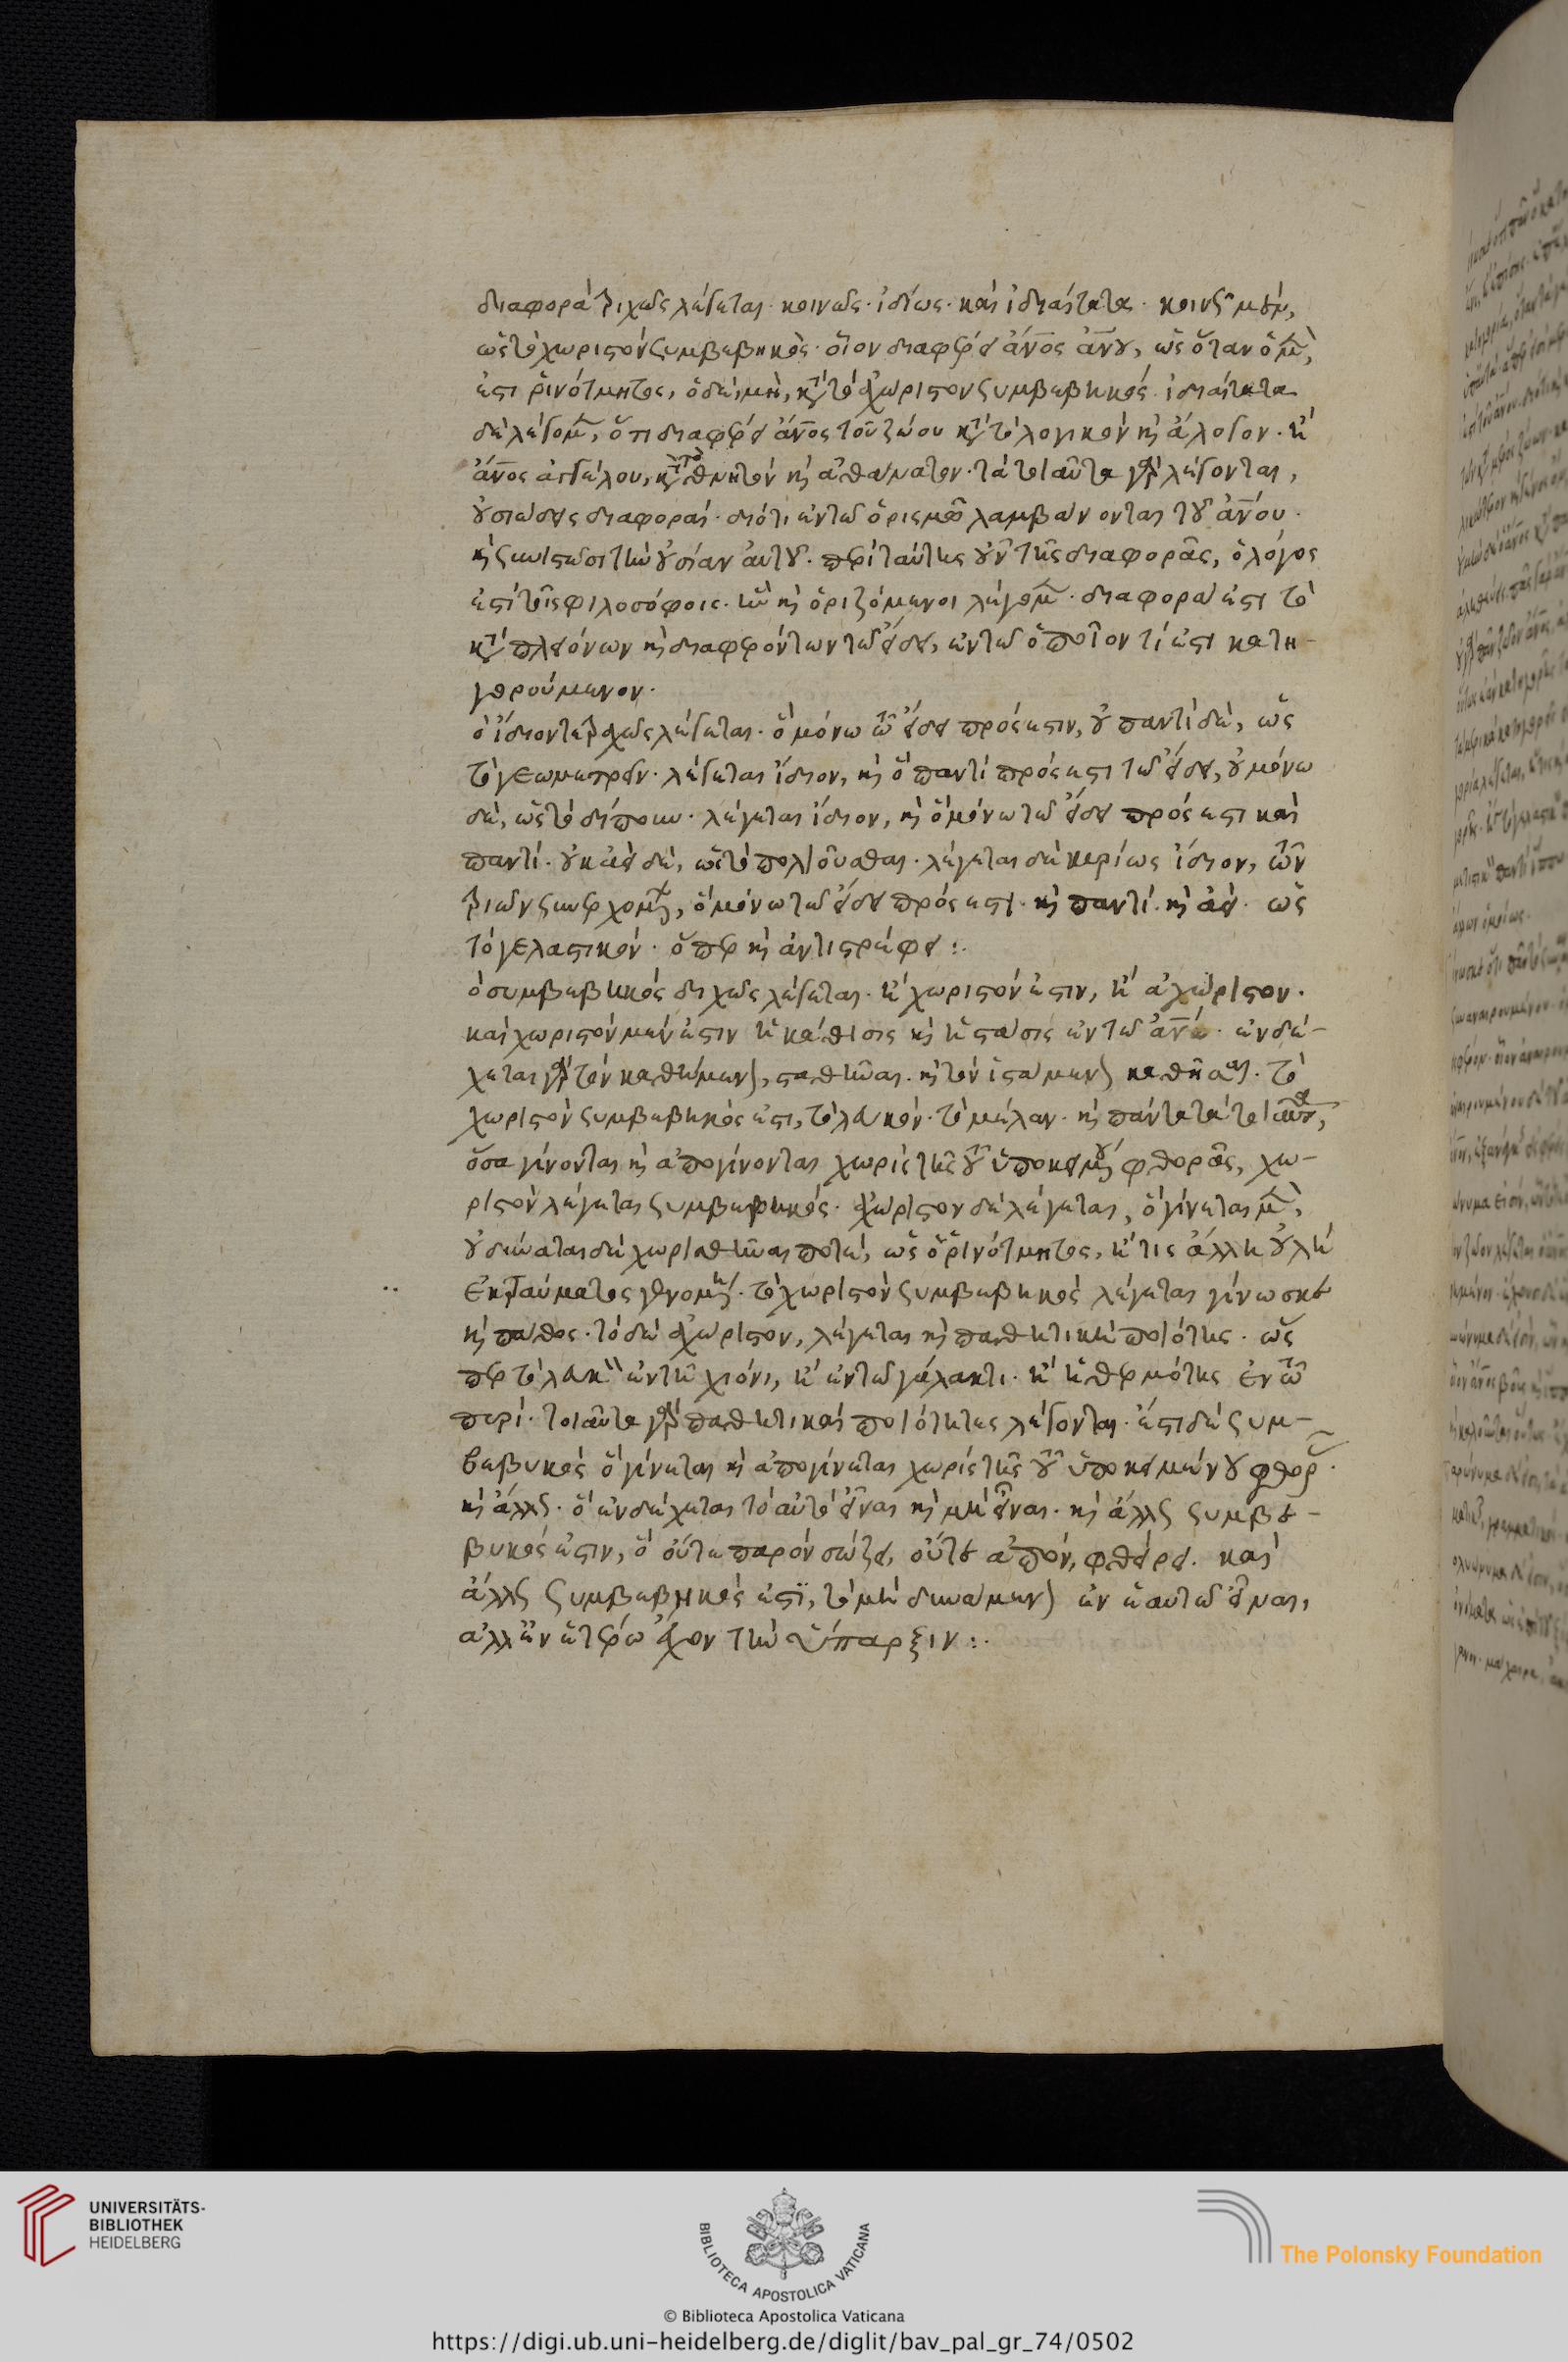 διαφορὰ τριχῶς λέγεται· κοινῶς· ἰδίως· καὶ ἰδιαίτατα· κοινῶς μὲν,
ὡς τὸ χωριστὸν συμβεβηκὸς· οἷον διαφέρει ἄνος ἄνου, ὡς ὅταν ὁ μὲν,
ἐστι ῥινότμητος, ὁ δὲ, μὴ, κατὰ τὸ ἀχώριστον συμβεβηκός· ἰδιαίτατα
δὲ λέγομεν, ὅτι διαφέρει ἄνος τοῦ ζώου κατὰ τὸ λογικὸν καὶ ἄλογον· ἢ
ἄνος ἀγγέλου, κατὰ τὸ θνητὸν καὶ ἀθάνατον· τὰ τοιαῦτα γὰρ λέγονται,
οὐσιώδεις διαφοραί· διότι ἐν τῷ ὁρισμῷ λαμβάνονται τοῦ ἄνου·
καὶ συνιστῶσι τὴν οὐσίαν αὐτοῦ· περὶ ταύτης οὖν τῆς διαφορᾶς, ὁ λόγος
ἐστὶ τοῖς φιλοσόφοις· ἣν καὶ ὁριζόμενοι λέγομεν· διαφορά ἐστι τὸ
κατὰ πλειόνων καὶ διαφερόντων τῷ εἴδει, ἐν τῷ ὁποῖον τί ἐστι κατη-
γορούμενον·
ὁ ἴδιον τετραχῶς λέγεται· ὃ μόνω τῶ εἴδει πρόσεστιν, οὐ παντὶ δὲ, ὡς
τὸ γεωμετρεῖν· λέγεται ἴδιον, καὶ ὃ παντὶ πρόσεστι τῷ εἴδει, οὐ μόνω
δὲ, ὡς τὸ δίπουν· λέγεται ἴδιον, καὶ ὃ μόνω τῷ εἴδει πρόσεστι καὶ
παντί· οὐκ ἀεὶ δὲ, ὡς τὸ πολιοῦσθαι· λέγεται δὲ κυρίως ἴδιον, τῶν
τριῶν συνερχομένων, ὃ μόνω τῷ εἴδει πρόσεστι· καὶ παντί· καὶ ἀεί· ὡς
τὸ γελαστικόν· ὅπερ καὶ ἀντιστρέφει:·
ὁ συμβεβηκός διχῶς λέγεται· ἢ χωριστόν ἐστιν, ἢ ἀχώριστον·
καὶ χωριστὸν μέν ἐστιν ἡ κάθισις καὶ ἡ στάσις ἐν τῷ ἄνω· ἐνδέ-
χεται γὰρ τὸν καθήμενον, σταθῆναι· καὶ τὸν ἱστάμενον καθῆσαι· τὸ
χωριστὸν συμβεβηκός ἐστι, τὸ λευκόν· τὸ μέλαν· καὶ πάντα τὰ τοιαῦτα,
ὅσα γίνονται καὶ ἀπογίνονται χωρὶς τῆς τοῦ ὑποκειμένου φθορᾶς, χω-
ριστὸν λέγεται συμβεβηκός· ἀχώριστον δὲ λέγεται, ὃ γίνεται μὲν,
οὐ δύναται δὲ χωρισθῆναι ποτέ, ὡς ὁ ῥινότμητος, ἤ τις ἄλλη οὐλὴ
ἐκ τραύματος γενομένη· τὸ χωριστὸν συμβεβηκὸς λέγεται γίνωσκε
καὶ πάθος· τὸ δὲ ἀχώριστον, λέγεται καὶ παθητικὴ ποιότης· ὡς
περ τὸ λευκὸν ἐν τῇ χιόνι, ἢ ἐν τῷ γάλακτι· ἢ ἡ θερμότης ἐν τῶ
πυρί· τοιαῦτα γὰρ παθητικαὶ ποιότητες λέγονται· ἔστι δὲ συμ-
βεβυκὸς ὃ γίνεται καὶ ἀπογίνεται χωρὶς τῆς τοῦ ὑποκειμένου φθορᾶς·
καὶ ἄλλως· ὃ ἐνδέχεται τὸ αὐτὸ εἶναι καὶ μὴ εἶναι· καὶ ἄλλως συμβε-
βυκός ἐστιν, ὃ οὔτε παρὸν σώζει, οὔτε ἀπὸν, φθείρει· καὶ
ἄλλως συμβεβηκός ἐστι, τὸ μὴ δυνάμενον ἐν ἑαυτῷ εἶναι,
ἀλλ' ἐν ἑτέρω ἔχον τὴν ὕπαρξιν:·
UNIVERSITÄTS-
BIBLIOTHEK
HEIDELBERG
BIBLIOTECA APOSTOLICA VATICANA
The Polonsky Foundation
© Biblioteca Apostolica Vaticana
https://digi.ub.uni-heidelberg.de/diglit/bav_pal_gr_74/0502